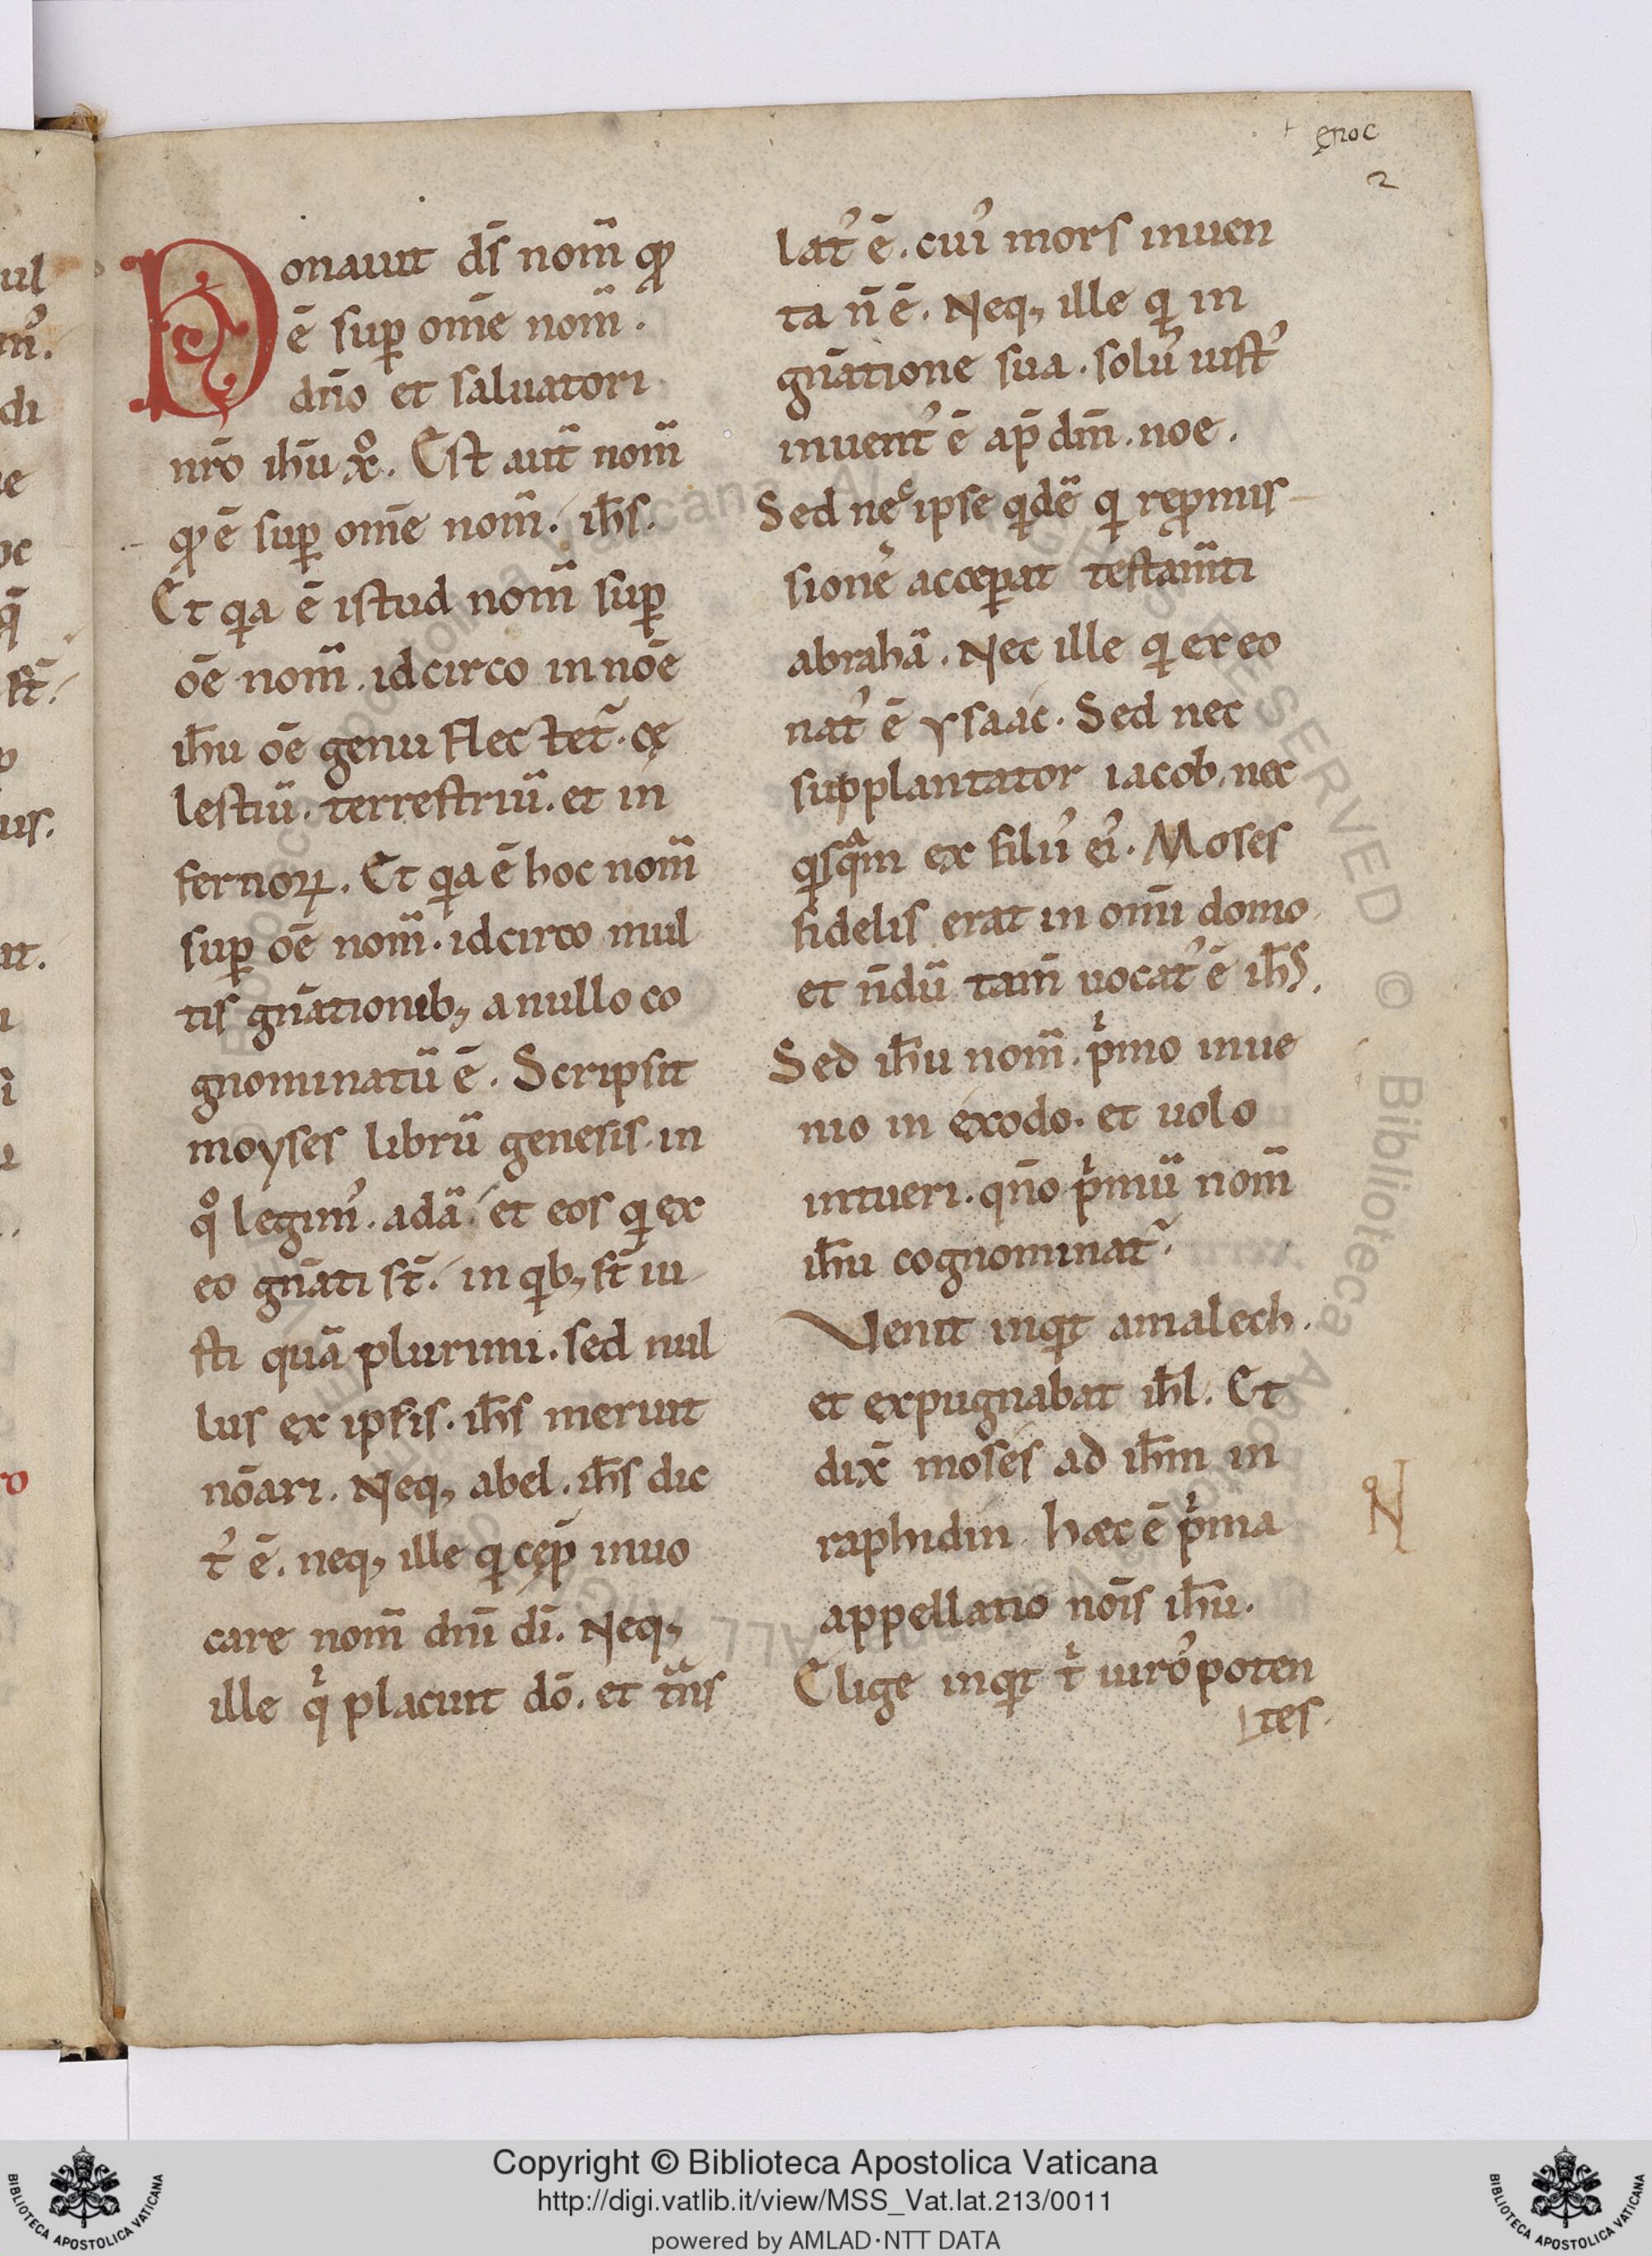 enoc
2
Donauit ds̄ nom̄ qđ
ē sup om̄e nom̄.
dn̄o et saluatori
nr̄o ih̄u xº. Est aut̄ nom̄
qđ ē sup om̄e nom̄. ih̄s.
Et qia ē istud nom̄ sup
ōe nom̄. idcirco in nōe
ih̄u ōe genu flectet̄. cę
lestiū. terrestriū. et in
fernoꝝ. Et qia ē hoc nom̄
sup ōe nom̄. idcirco mul
tis gn̄ationib; a nullo co
gnominatū ē. Scripsit
moyses librū genesis in
qº legim᾽. adā et eos qi ex
eo gn̄ati st̄. in qib; st̄ iu
sti quā plurimi. sed nul
lus ex ipsis. ih̄s meruit
nōari. Neq; abel. ih̄s dic
t᾽ ē. neq; ille qi cęp̄ inuo
care nom̄ dn̄i dī. Neq;
ille qⁱ placuit dō. et tn̄s
lat᾽ ē. cui᾽ mors inuen
ta n̄ ē. Neq; ille qi in
gn̄atione sua. solū iust᾽
inuent᾽ ē ap̄ dm̄. noe.
Sed nec ipse qidē qi repmis
sionē acceperat testām̄ti
abrahā. Nec ille qi ex eo
nat᾽ ē ysaac. Sed nec
supplantator iacob. nec
qisqᵃm ex filii᾽ ei᾽. Moses
fidelis erat in om̄i domo
et n̄dū tam̄ uocat᾽ ē ih̄s.
Sed ih̄u nom̄. pⁱmo inue
nio in exodo. et uolo
intueri. qn̄o pⁱmū nom̄
ih̄u cognominat̄.
Venit inqit amalech.
et expugnabat ih̄l. Et
dix̄ moses ad ih̄m in
raphidin hæc ē pⁱma
appellatio nōis ih̄u.
Elige inqit tⁱ uiro᾽ poten
tes.
Copyright © Biblioteca Apostolica Vaticana
http://digi.vatlib.it/view/MSS_Vat.lat.213/0011
powered by AMLAD·NTT DATA